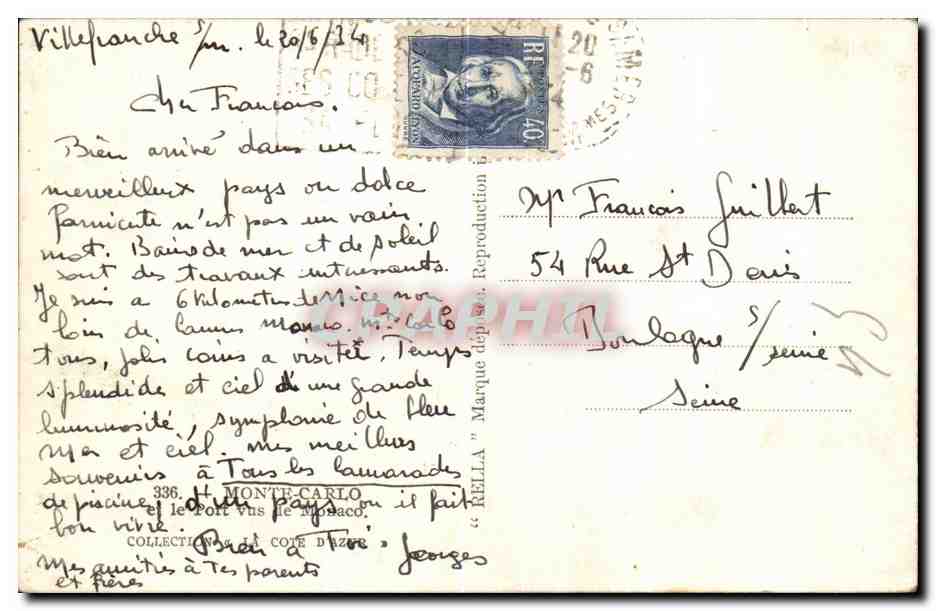 Villefranche s/m. le 20/6/34
Cher Francois.
Bien arrivé dans un
merveilleux pays ou dolce
farniente n'est pas un vain
mot. Bains de mer et de soleil
sont des travaux intéressants.
Je suis a 6 kilomètres de Nice non
loin de Cannes Monaco. Mte Carlo
tous, jolis coins a visiter. Temps
splendide et ciel d'une grande
luminosité, symphonie de bleu
Mer et ciel. mes meilleurs
souvenirs à Tous les Camarades
de piscine, d'un pays ou il fait
bon vivre.
Bien à Toi
Georges
Mes amitiés à tes parents
et frères
336. MONTE-CARLO
et le Port vus de Monaco.
COLLECTION « LA COTE D'AZUR »
"RELLA" Marque déposée. Reproduction i
RF
POSTES
40c
JACQUARD LYON
20
-6
Mr Francois Guilbert
54 Rue St Denis
Boulogne s/seine
Seine
CPAPHIL